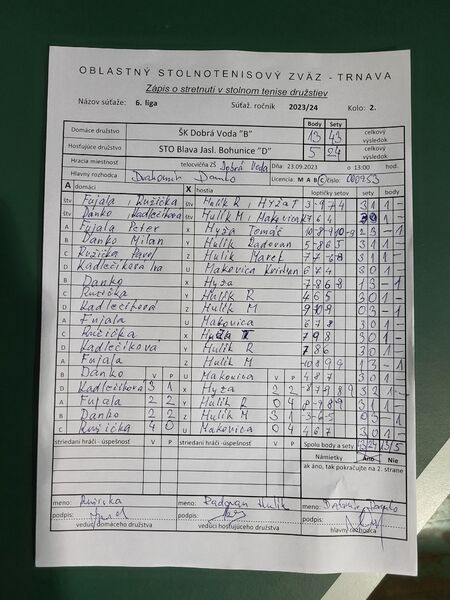 OBLASTNÝ STOLNOTENISOVÝ ZVÄZ - TRNAVA
Zápis o stretnutí v stolnom tenise družstiev
Názov súťaže: 6. liga Súťaž. ročník 2023/24 Kolo: 2.
Body Sety
Domáce družstvo ŠK Dobrá Voda "B" 13 43 celkový výsledok
Hosťujúce družstvo STO Blava Jasl. Bohunice "D" 5 24 celkový výsledok
Hracia miestnosť telocvičňa ZŠ Dobrá Voda Dňa: 23.09.2023 o 13:00 hod.
Hlavný rozhodca Drahomír Danko Licencia: M A B C číslo:
A domáci X hostia loptičky setov sety body
štv Fujala, Ružička štv Hulík R, Hyža T 3 1 1 -
štv Danko, Kadlečíková štv Hulík M, Makovica K 7 6 4 1 -
A Fujala Peter X Hyža Tomáš 2 3 - 1
B Danko Milan Y Hulík Radovan 3 1 1 -
C Ružička Pavol Z Hulík Marek 3 1 1 -
D Kadlečíková Iva U Makovica Kristian 6 7 4 3 0 1 -
B Danko X Hyža 7 8 6 8 1 3 - 1
C Ružička Y Hulík R 4 6 5 3 0 1 -
D Kadlečíková Z Hulík M 0 3 - 1
A Fujala U Makovica 6 7 8 3 0 1 -
C Ružička X Hyža T 7 9 8 3 0 1 -
D Kadlečíková Y Hulík R 7 8 6 3 0 1 -
A Fujala Z Hulík M 1 3 - 1
B Danko V P U Makovica V P 4 8 7 3 0 1 -
D Kadlečíková 3 1 X Hyža 2 2 3 2 1 -
A Fujala 2 2 Y Hulík R 0 4 3 0 1 -
B Danko 2 2 Z Hulík M 3 1 0 3 - 1
C Ružička 4 0 U Makovica 0 4 4 6 7 3 0 1 -
striedaní hráči - úspešnosť V P striedaní hráči - úspešnosť V P Spolu body a sety 13/5
Námietky Áno Nie
ak áno, tak pokračujte na 2. strane
meno: Ružička meno: Radovan Hulík meno: Drahomír Danko
podpis: podpis: podpis:
vedúci domáceho družstva vedúci hosťujúceho družstva hlavný rozhodca